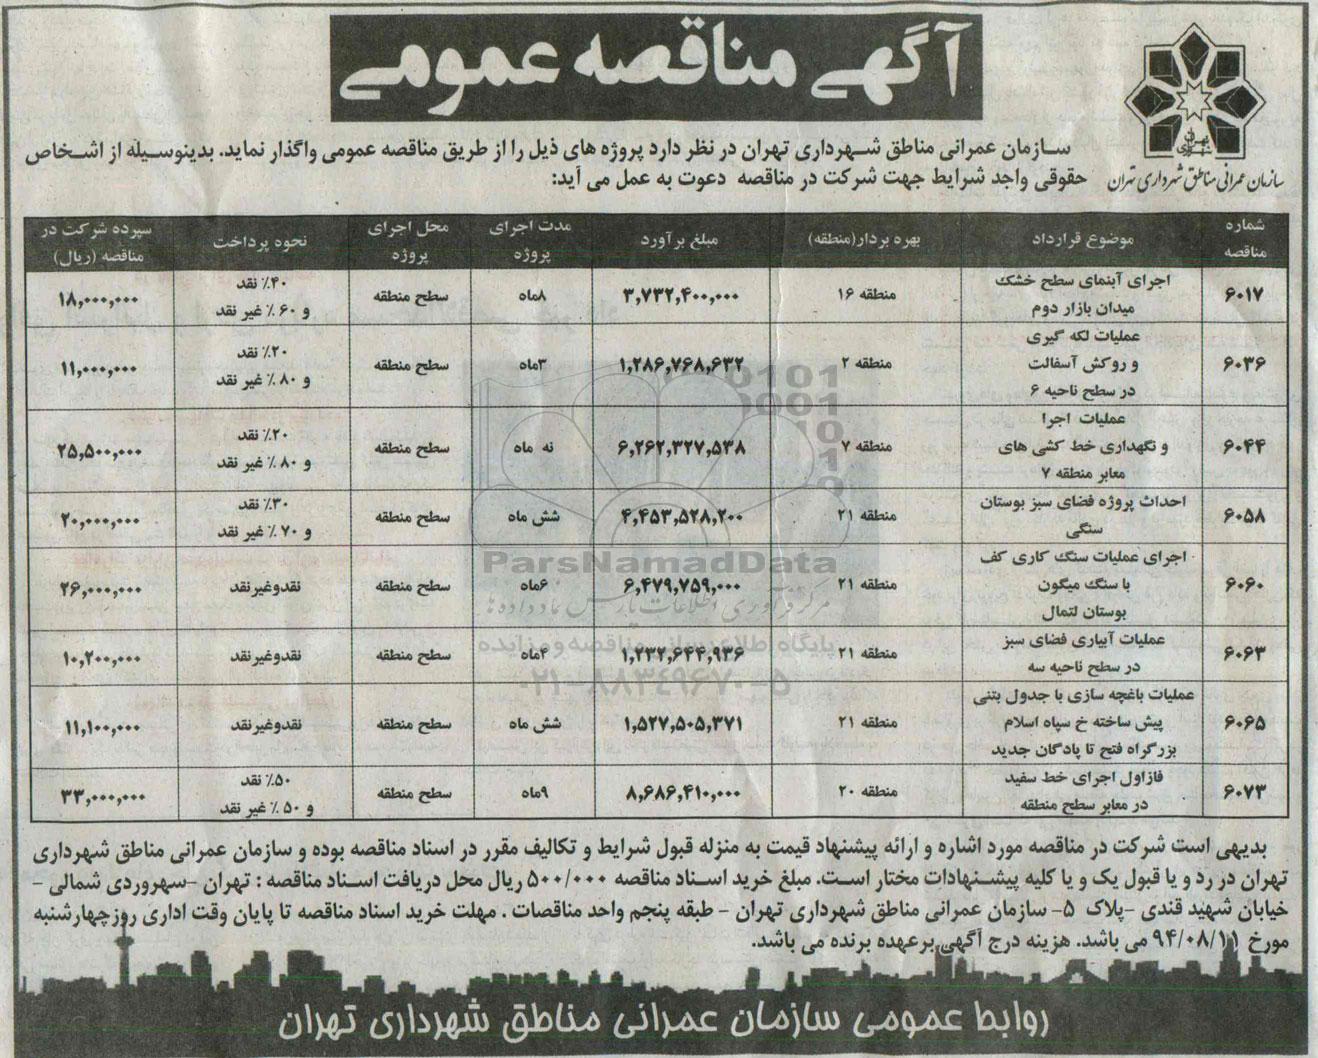 آگهی مناقصه عمومی
سازمان عمرانی مناطق شهرداری تهران
سازمان عمرانی مناطق شهرداری تهران در نظر دارد پروژه های ذیل را از طریق مناقصه عمومی واگذار نماید. بدینوسیله از اشخاص
حقوقی واجد شرایط جهت شرکت در مناقصه دعوت به عمل می آید:
شماره مناقصه | موضوع قرارداد | بهره بردار(منطقه) | مبلغ برآورد | مدت اجرای پروژه | محل اجرای پروژه | نحوه پرداخت | سپرده شرکت در مناقصه (ریال)
۶۰۱۷ | اجرای آبنمای سطح خشک میدان بازار دوم | منطقه ۱۶ | ۳,۷۳۲,۴۰۰,۰۰۰ | ۸ماه | سطح منطقه | ۴۰٪ نقد و ۶۰٪ غیر نقد | ۱۸,۰۰۰,۰۰۰
۶۰۳۶ | عملیات لکه گیری و روکش آسفالت در سطح ناحیه ۶ | منطقه ۲ | ۱,۲۸۶,۷۶۸,۶۳۲ | ۳ماه | سطح منطقه | ۲۰٪ نقد و ۸۰٪ غیر نقد | ۱۱,۰۰۰,۰۰۰
۶۰۴۴ | عملیات اجرا و نگهداری خط کشی های معابر منطقه ۷ | منطقه ۷ | ۶,۲۶۲,۳۲۷,۵۳۸ | نه ماه | سطح منطقه | ۲۰٪ نقد و ۸۰٪ غیر نقد | ۲۵,۵۰۰,۰۰۰
۶۰۵۸ | احداث پروژه فضای سبز بوستان سنگی | منطقه ۲۱ | ۴,۴۵۳,۵۲۸,۲۰۰ | شش ماه | سطح منطقه | ۳۰٪ نقد و ۷۰٪ غیر نقد | ۲۰,۰۰۰,۰۰۰
۶۰۶۰ | اجرای عملیات سنگ کاری کف با سنگ میگون بوستان لتمال | منطقه ۲۱ | ۶,۴۷۹,۷۵۹,۰۰۰ | ۶ماه | سطح منطقه | نقدوغیرنقد | ۲۶,۰۰۰,۰۰۰
۶۰۶۳ | عملیات آبیاری فضای سبز در سطح ناحیه سه | منطقه ۲۱ | ۱,۲۳۲,۶۴۴,۹۳۶ | ۴ماه | سطح منطقه | نقدوغیرنقد | ۱۰,۲۰۰,۰۰۰
۶۰۶۵ | عملیات باغچه سازی با جدول بتنی پیش ساخته خ سپاه اسلام بزرگراه فتح تا پادگان جدید | منطقه ۲۱ | ۱,۵۲۷,۵۰۵,۳۷۱ | شش ماه | سطح منطقه | نقدوغیرنقد | ۱۱,۱۰۰,۰۰۰
۶۰۷۳ | فازاول اجرای خط سفید در معابر سطح منطقه | منطقه ۲۰ | ۸,۶۸۶,۴۱۰,۰۰۰ | ۹ماه | سطح منطقه | ۵۰٪ نقد و ۵۰٪ غیر نقد | ۳۳,۰۰۰,۰۰۰
ParsNamadData
مرکز فرآوری اطلاعات پارس نماد داده ها
پایگاه اطلاع رسانی مناقصه و مزایده
۰۲۱-۸۸۳۴۹۶۷۰-۵
بدیهی است شرکت در مناقصه مورد اشاره و ارائه پیشنهاد قیمت به منزله قبول شرایط و تکالیف مقرر در اسناد مناقصه بوده و سازمان عمرانی مناطق شهرداری
تهران در رد و یا قبول یک و یا کلیه پیشنهادات مختار است. مبلغ خرید اسناد مناقصه ۵۰۰/۰۰۰ ریال محل دریافت اسناد مناقصه : تهران -سهروردی شمالی -
خیابان شهید قندی -پلاک ۵- سازمان عمرانی مناطق شهرداری تهران - طبقه پنجم واحد مناقصات . مهلت خرید اسناد مناقصه تا پایان وقت اداری روزچهارشنبه
مورخ ۹۴/۰۸/۱۱ می باشد. هزینه درج آگهی برعهده برنده می باشد.
روابط عمومی سازمان عمرانی مناطق شهرداری تهران